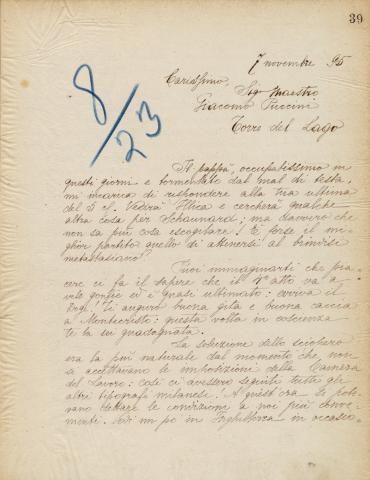 39
7 novembre 95
Carissimo,
Sigr Maestro
Giacomo Puccini
Torre del Lago
8/23
Il pappà, occupatissimo in
questi giorni e tormentato dal mal di testa,
mi incarica di rispondere alla tua ultima
del 5 cf. Vedrà Illica e cercherà qualche
altra cosa per Schaunard; ma davvero che
non sa più cosa escogitare! È forse il mi-
glior partito quello di attenersi al brindisi
metastasiano?
Puoi immaginarti che pia-
cere ci fa il sapere che il 4° atto va a
vele gonfie ed è quasi ultimato: evviva il
Ti auguro buona gita e buona caccia
a Montecristo: questa volta in coscienza
te la sei guadagnata.
La soluzione dello sciopero
era la più naturale dal momento che non
si accettavano le imposizioni della Camera
del Lavoro: così ci avessero seguiti tutti gli
altri tipografi milanesi! A quest'ora si pote-
vano dettare le condizioni a noi più conve-
nienti. Fui un po' in Inghilterra in occasio-